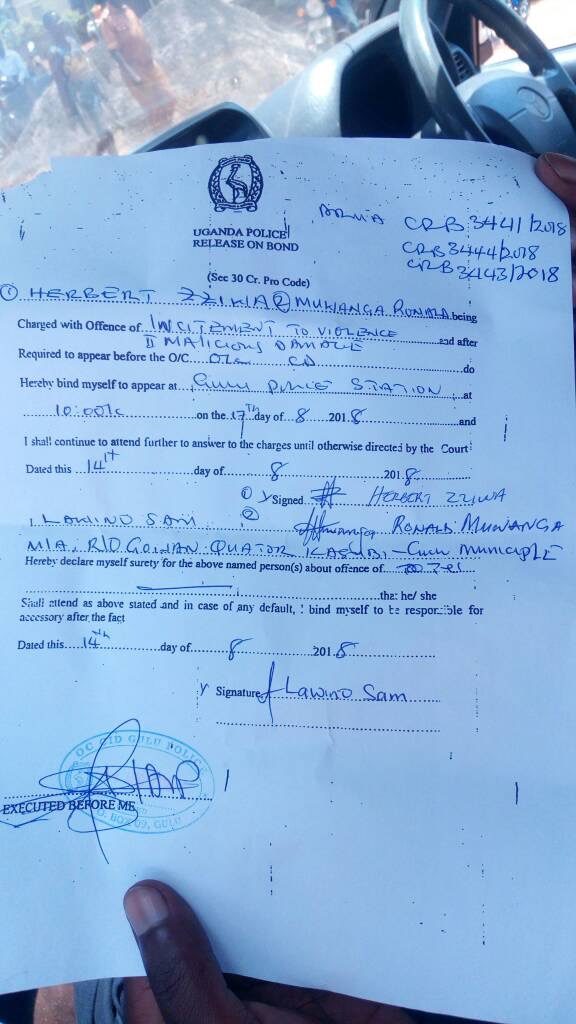 CRB 3441/2018
UGANDA POLICE
CRB 3444/2018
RELEASE ON BOND
CRB 3443/2018
(Sec 30 Cr. Pro Code)
① HERBERT ZZIWA ② MUWANGA RONALD being
Charged with Offence of I INCITEMENT TO VIOLENCE and after
II MALICIOUS DAMAGE
Required to appear before the O/C do
Hereby bind myself to appear at GULU POLICE STATION at
10:00 on the 17th day of 8 2018 and
I shall continue to attend further to answer to the charges until otherwise directed by the Court
Dated this 14th day of 8 2018
① Signed HERBERT ZZIWA
I LAWINO SAM ② RONALD MUWANGA
M/A, R/O QUATOR KASUBI - GULU MUNICIPLE
Hereby declare myself surety for the above named person(s) about offence of
that he/ she
Shall attend as above stated and in case of any default, I bind myself to be responsible for
accessory after the fact
Dated this 14th day of 8 2018
Signature Lawino Sam
OC CID GULU POLICE
EXECUTED BEFORE ME
GULU